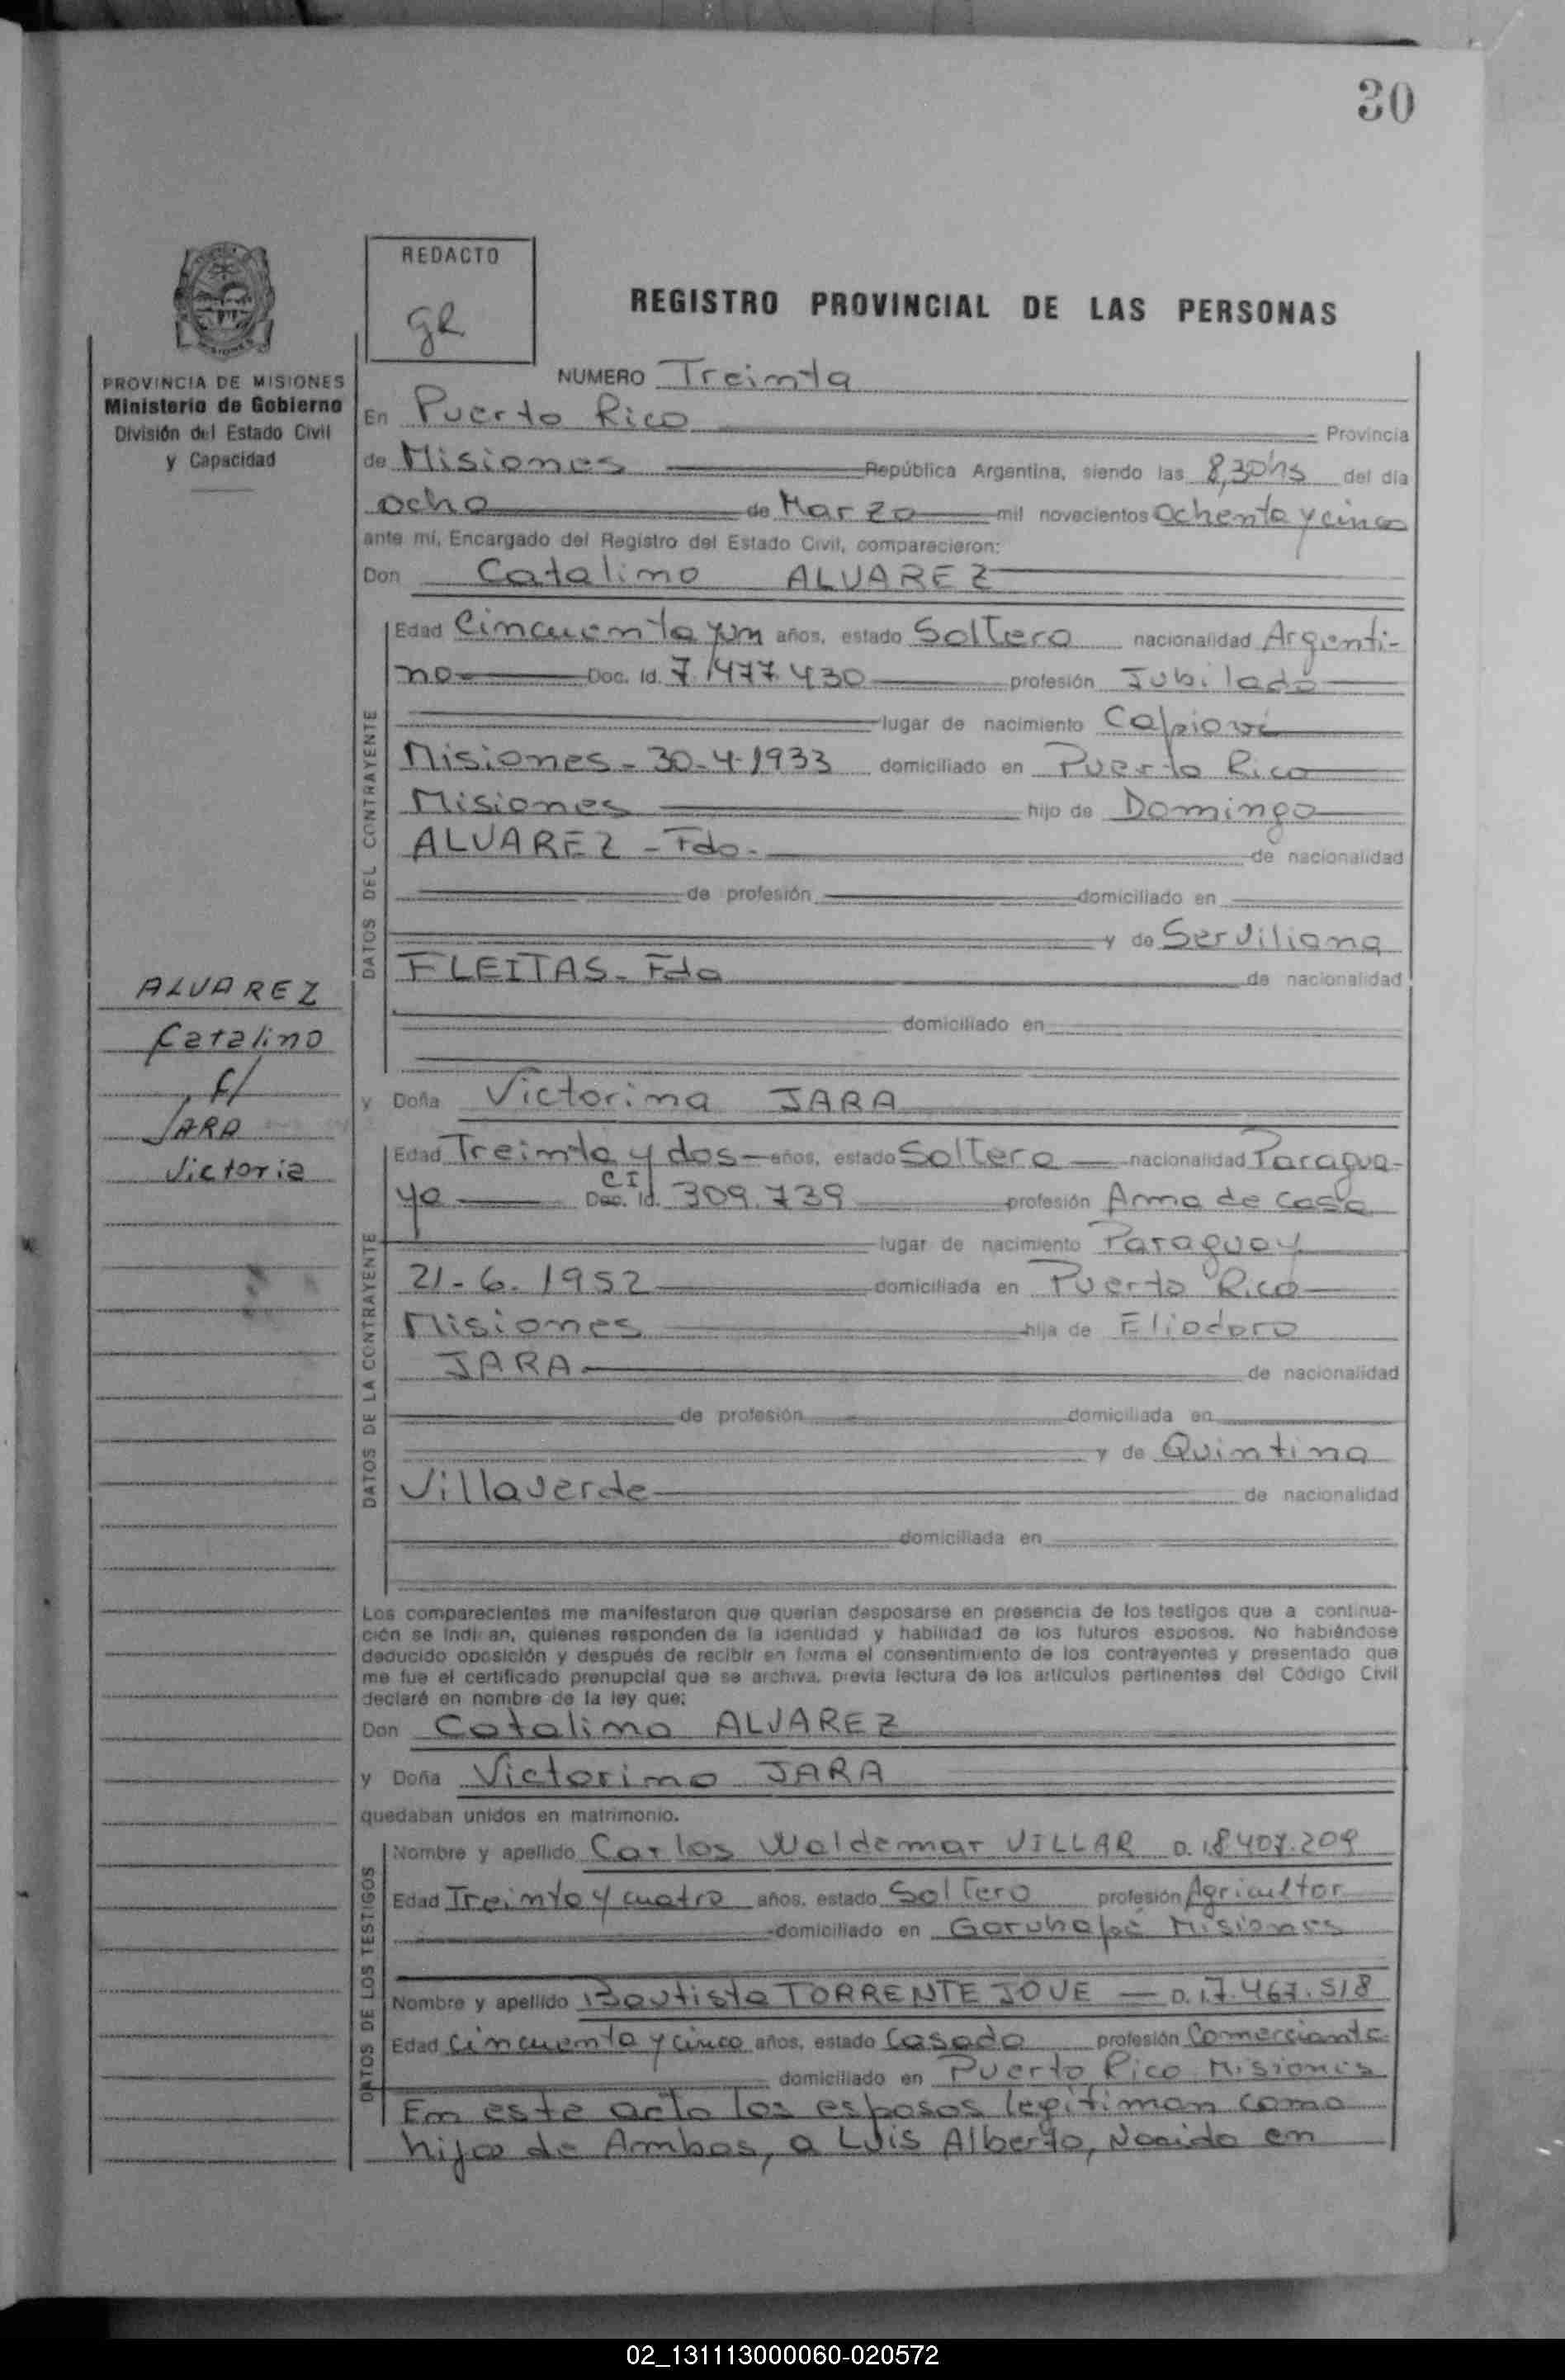 30
REDACTO
gR
REGISTRO PROVINCIAL DE LAS PERSONAS
PROVINCIA DE MISIONES
Ministerio de Gobierno
División del Estado Civil
y Capacidad
NUMERO Treinta
En Puerto Rico Provincia
de Misiones República Argentina, siendo las 8,30hs del día
ocho de Marzo mil novecientos ochenta y cinco
ante mí, Encargado del Registro del Estado Civil, comparecieron:
Don Catalino ALVAREZ
DATOS DEL CONTRAYENTE
Edad Cincuenta y un años, estado Soltero nacionalidad Argenti-
no Doc. Id. 7.477.430 profesión Jubilado
lugar de nacimiento Capioví
Misiones - 30-4-1933 domiciliado en Puerto Rico
Misiones hijo de Domingo
ALVAREZ - Fdo. de nacionalidad
de profesión domiciliado en
y de Serviliana
FLEITAS - Fda de nacionalidad
domiciliado en
ALVAREZ
Catalino
c/
JARA
Victoria
y Doña Victorina JARA
DATOS DE LA CONTRAYENTE
Edad Treinta y dos años, estado Soltera nacionalidad Paragua-
ya CI Doc. Id. 309.739 profesión Ama de casa
lugar de nacimiento Paraguay
21-6-1952 domiciliada en Puerto Rico
Misiones hija de Eliodoro
JARA de nacionalidad
de profesión domiciliada en
y de Quintina
Villaverde de nacionalidad
domiciliada en
Los comparecientes me manifestaron que querían desposarse en presencia de los testigos que a continua-
ción se indi an, quienes responden de la identidad y habilidad de los futuros esposos. No habiéndose
deducido oposición y después de recibir en forma el consentimiento de los contrayentes y presentado que
me fue el certificado prenupcial que se archiva, previa lectura de los artículos pertinentes del Código Civil
declaré en nombre de la ley que:
Don Catalino ALVAREZ
y Doña Victorina JARA
quedaban unidos en matrimonio.
DATOS DE LOS TESTIGOS
Nombre y apellido Carlos Waldemar VILLAR D.I. 8.407.209
Edad Treinta y cuatro años, estado Soltero profesión Agricultor
domiciliado en Garuhapé Misiones
Nombre y apellido Bautista TORRENTE JOVE D.I. 7.467.518
Edad Cincuenta y cinco años, estado Casado profesión Comerciante
domiciliado en Puerto Rico Misiones
En este acto los esposos legitiman como
hijos de Ambos, a Luis Alberto, Nacido en
02_131113000060-020572